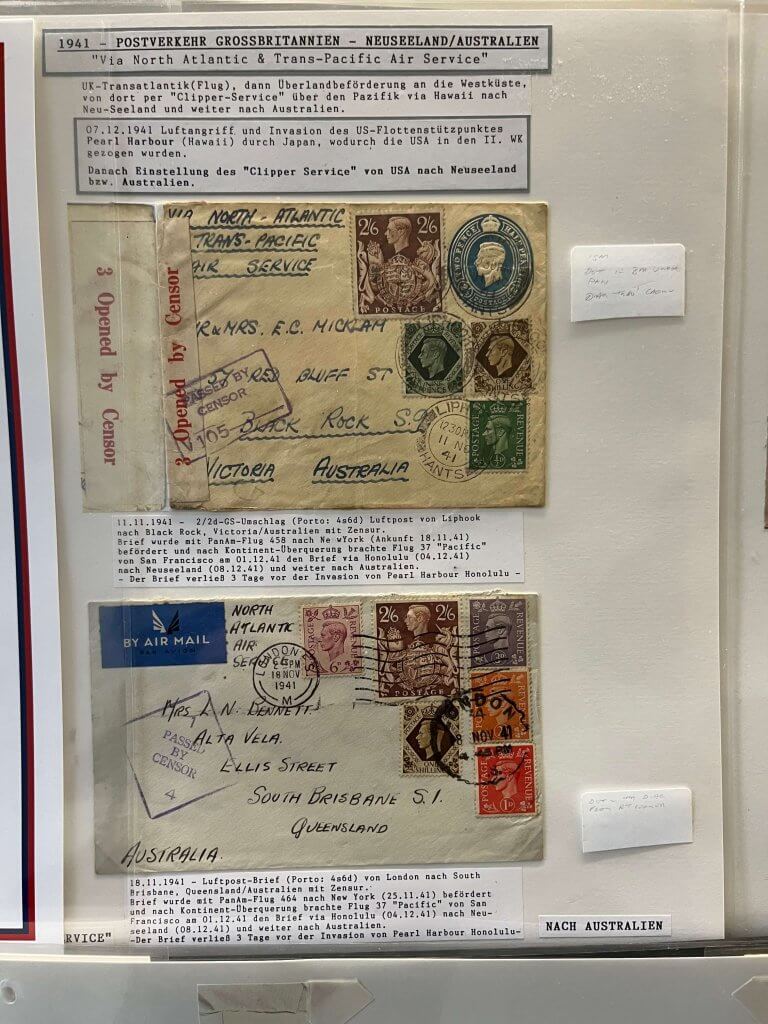 1941 - POSTVERKEHR GROSSBRITANNIEN - NEUSEELAND/AUSTRALIEN
"Via North Atlantic & Trans-Pacific Air Service"
UK-Transatlantik(Flug), dann Überlandbeförderung an die Westküste,
von dort per "Clipper-Service" über den Pazifik via Hawaii nach
Neu-Seeland und weiter nach Australien.
07.12.1941 Luftangriff und Invasion des US-Flottenstützpunktes
Pearl Harbour (Hawaii) durch Japan, wodurch die USA in den II. WK
gezogen wurden.
Danach Einstellung des "Clipper Service" von USA nach Neuseeland
bzw. Australien.
3 Opened by Censor
3 Opened by Censor
VIA NORTH-ATLANTIC
TRANS-PACIFIC
AIR SERVICE
2/6 2/6
POSTAGE
TWO PENCE HALFPENNY
POSTAGE
R & MRS. E.C. MICKLAM
NINE PENCE
ONE SHILLING
RED BLUFF ST
PASSED BY
CENSOR
105
BLACK ROCK S.9
VICTORIA AUSTRALIA
LIPHOOK
12 30 PM
11 NO
41
HANTS
POSTAGE REVENUE
11.11.1941 - 2/2d-GS-Umschlag (Porto: 4s6d) Luftpost von Liphook
nach Black Rock, Victoria/Australien mit Zensur.
Brief wurde mit PanAm-Flug 458 nach Ne wYork (Ankunft 18.11.41)
befördert und nach Kontinent-Überquerung brachte Flug 37 "Pacific"
von San Francisco am 01.12.41 den Brief via Honolulu (04.12.41)
nach Neuseeland (08.12.41) und weiter nach Australien.
- Der Brief verließ 3 Tage vor der Invasion von Pearl Harbour Honolulu -
BY AIR MAIL
PAR AVION
NORTH
ATLANTIC
AIR
SERVICE
POSTAGE REVENUE
6D
2/6 2/6
POSTAGE
POSTAGE REVENUE
LONDON
PM
18 NOV
1941
M
MRS L. N. BENNETT
ALTA VELA.
ELLIS STREET
SOUTH BRISBANE S.1.
QUEENSLAND
AUSTRALIA.
PASSED
BY
CENSOR
4
ONE SHILLING
LONDON
8 NOV 41
PM
POSTAGE REVENUE
1D
18.11.1941 - Luftpost-Brief (Porto: 4s6d) von London nach South
Brisbane, Queensland/Australien mit Zensur.
Brief wurde mit PanAm-Flug 464 nach New York (25.11.41) befördert
und nach Kontinent-Überquerung brachte Flug 37 "Pacific" von San
Francisco am 01.12.41 den Brief via Honolulu (04.12.41) nach Neu-
seeland (08.12.41) und weiter nach Australien.
-Der Brief verließ 3 Tage vor der Invasion von Pearl Harbour Honolulu-
NACH AUSTRALIEN
ERVICE"